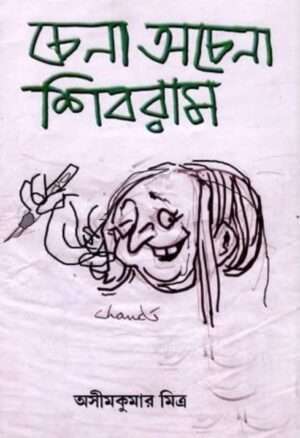 চেনা অচেনা
শিবরাম
chandi
অসীমকুমার মিত্র